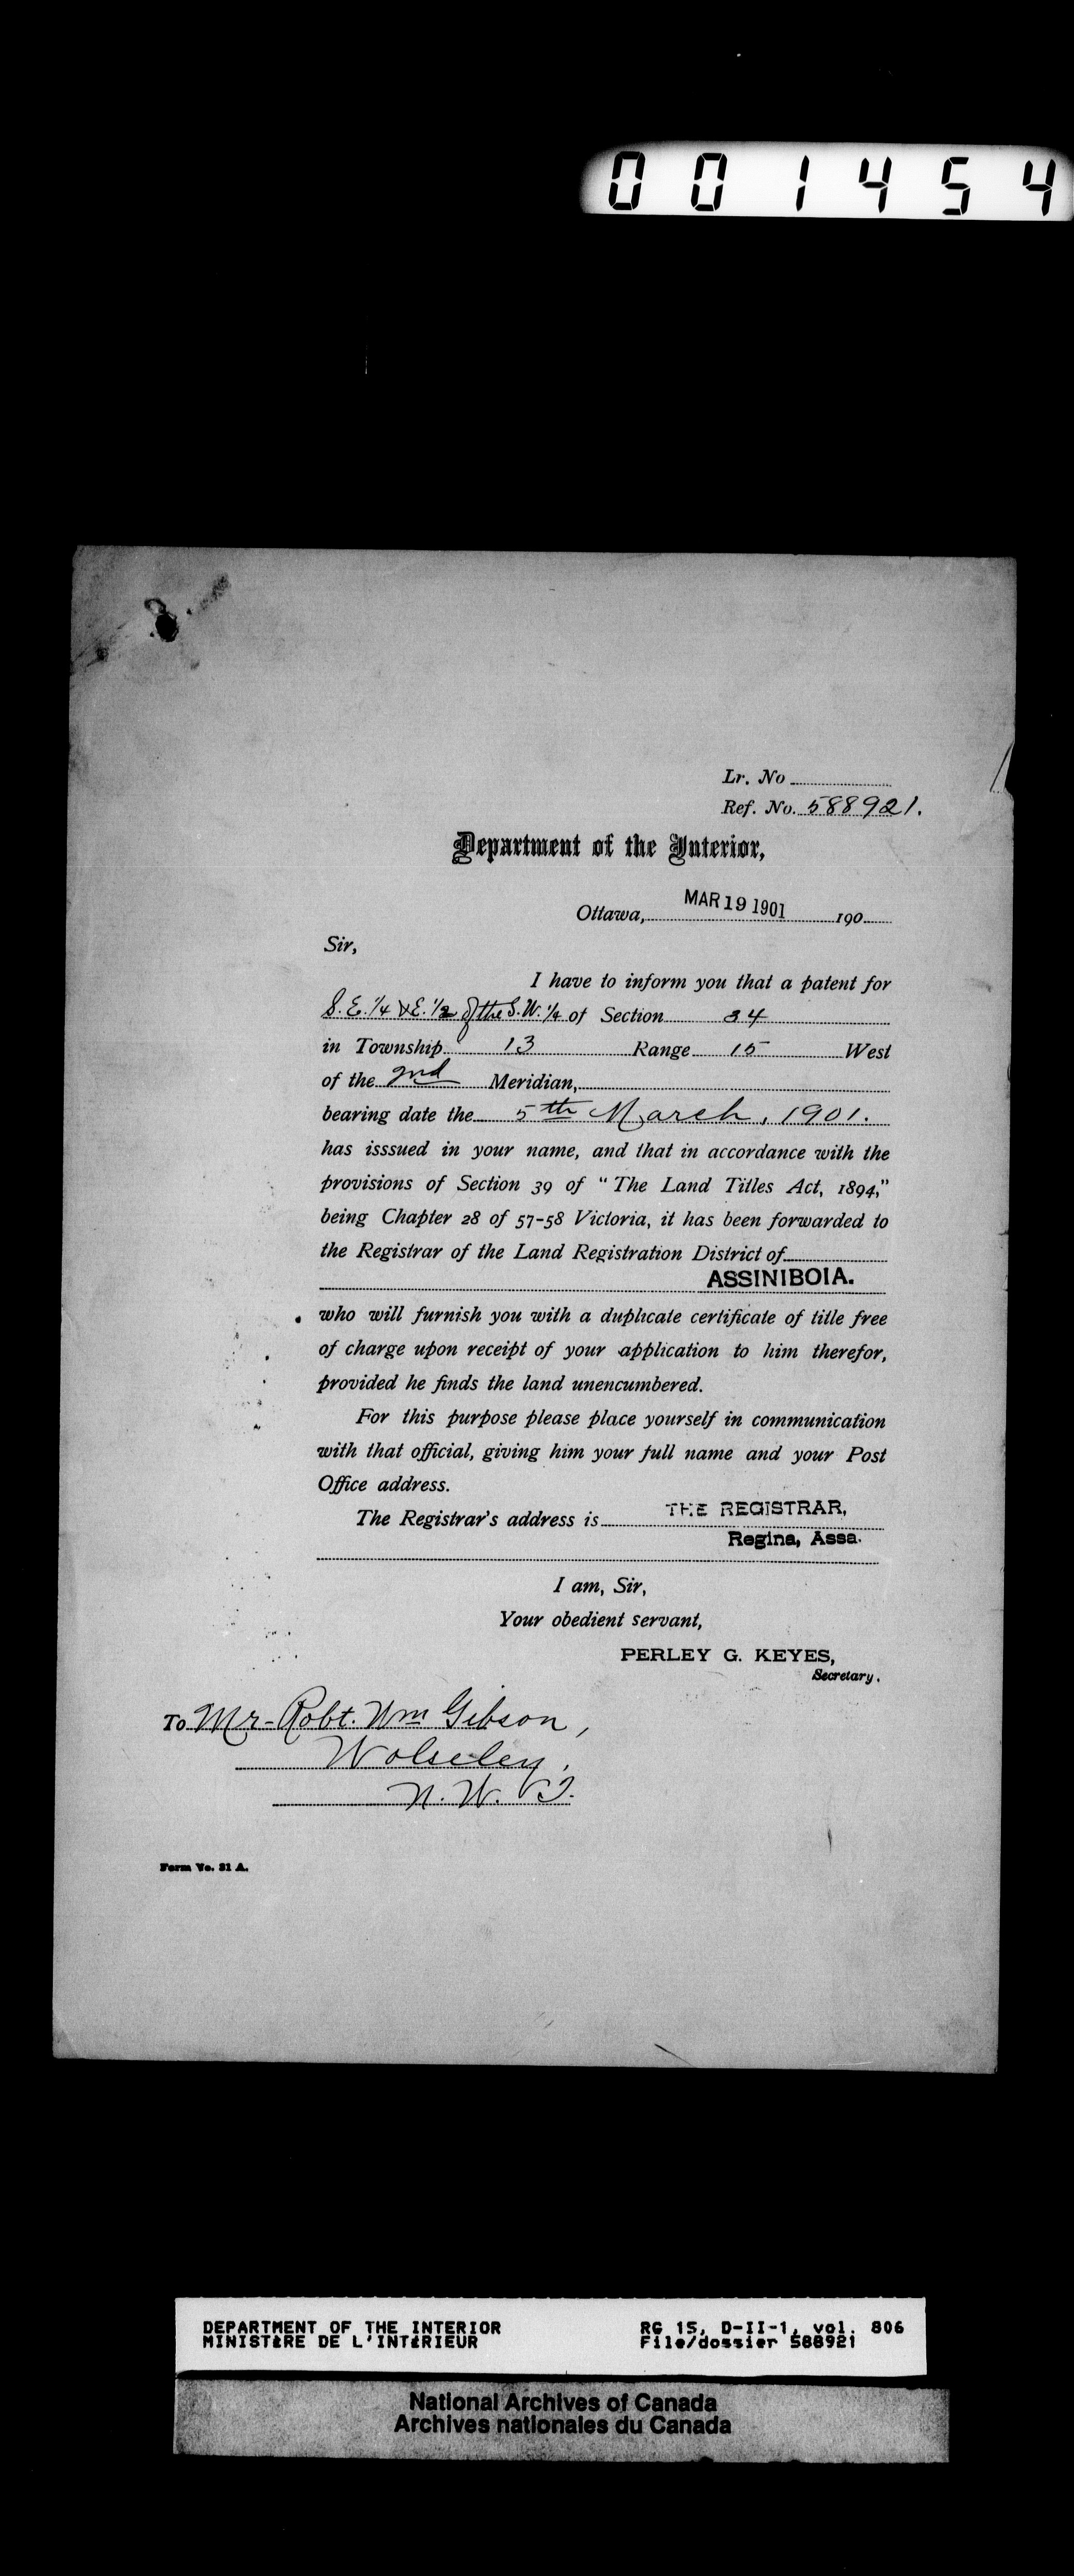 001454
Lr. No
Ref. No. 588921.
Department of the Interior,
Ottawa, MAR 19 1901 190
Sir,
I have to inform you that a patent for
S.E. 1/4 & E. 1/2 of the S.W. 1/4 of Section 34
in Township 13 Range 15 West
of the 2nd Meridian,
bearing date the 5th March, 1901.
has isssued in your name, and that in accordance with the
provisions of Section 39 of "The Land Titles Act, 1894,"
being Chapter 28 of 57-58 Victoria, it has been forwarded to
the Registrar of the Land Registration District of
ASSINIBOIA.
who will furnish you with a duplicate certificate of title free
of charge upon receipt of your application to him therefor,
provided he finds the land unencumbered.
For this purpose please place yourself in communication
with that official, giving him your full name and your Post
Office address.
The Registrar's address is THE REGISTRAR,
Regina, Assa.
I am, Sir,
Your obedient servant,
PERLEY G. KEYES,
Secretary.
To Mr- Robt. Wm Gibson,
Wolseley,
N. W. T.
Form No. 31 A.
DEPARTMENT OF THE INTERIOR RG 15, D-II-1, vol. 806
MINISTÈRE DE L'INTÉRIEUR File/dossier 588921
National Archives of Canada
Archives nationales du Canada